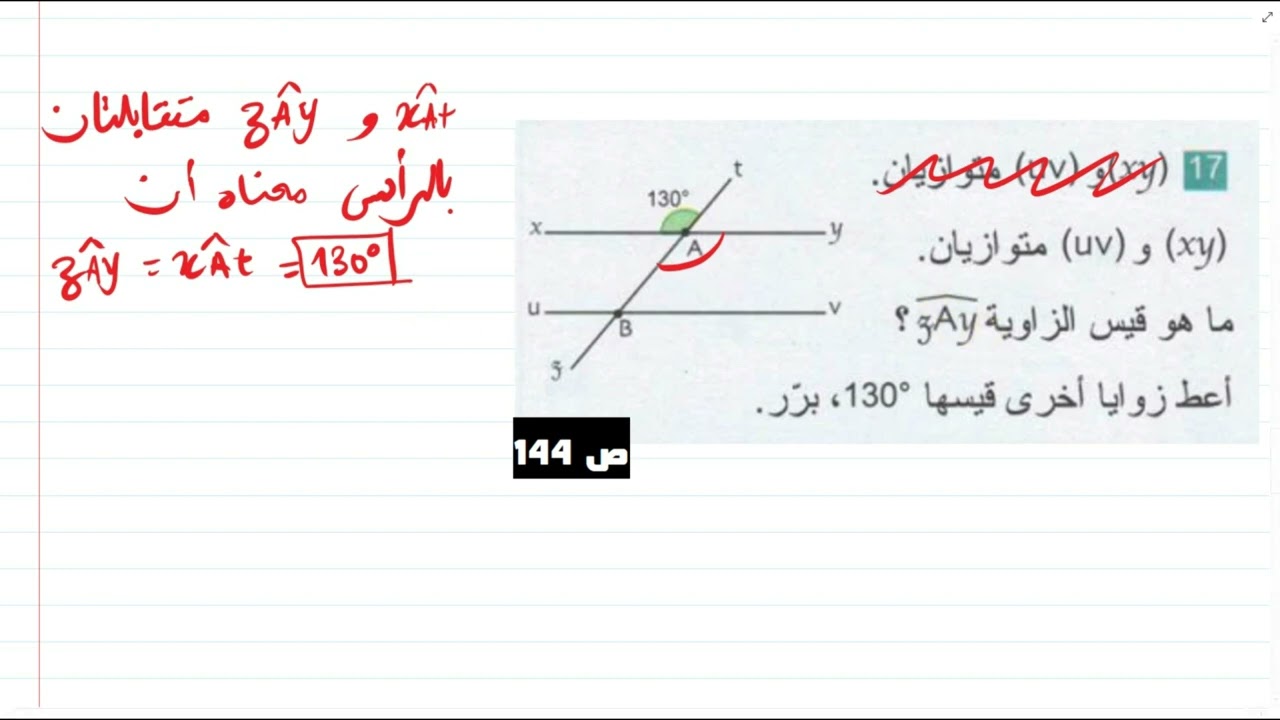 xÂt و zÂy متقابلتان
بالرأس معناه أن
zÂy = xÂt = 130°
17 (xy) و (uv) متوازيان.
(xy) و (uv) متوازيان.
ما هو قيس الزاوية zAy ؟
أعط زوايا أخرى قيسها 130°، برّر.
t
130°
x
y
A
u
v
B
z
ص 144